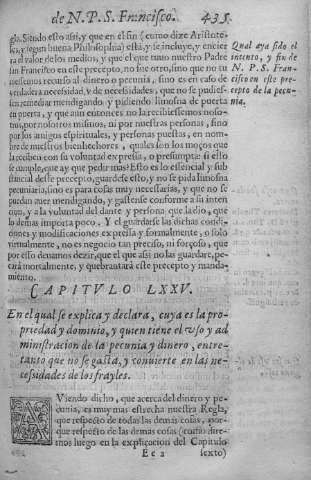 de N. P. S. Francisco. 435
gla. Siendo esto assi, y que en el fin (como dize Aristote-
les, y segun buena Philosophia) està, y se incluye, y encier
ra el valor de los medios, y que el que tuuo nuestro Padre
san Francisco en este precepto, no fue otro, sino que no tu
uiessemos recurso al dinero o pecunia, sino es en caso de
verdadera necessidad, y de necessidades, que no se pudies-
sen remediar mendigando y pidiendo limosna de puerta
en puerta, y que aun entonces no la recibiessemos noso-
tros, por nosotros mismos, ni por nuestras personas, sino
por los amigos espirituales, y personas puestas, en nom-
bre de nuestros bienhechores, quales son los moços que
la reciben con su voluntad expressa, o presumpta: si esto
se cumple, que ay que pedir mas? Esto es lo essencial, y sub
stancial deste precepto, guardese esto, y no se pida limosna
pecuniaria, sino es para cosas muy necessarias, y que no se
puedan auer mendigando, y gastense conforme a su inten
cion, y a la voluntad del dante y persona que la dio, que
lo demas importa poco. Y el guardarse las dichas condi-
ciones y modificaciones expressa y formalmente, o solo
virtualmente, no es negocio tan preciso, ni forçoso, que
por esso deuamos dezir, que el que assi no las guardare, pe-
carà mortalmente, y quebrantarà este precepto y manda-
miento.
Qual aya sido el
intento, y fin de
N. P. S. Fran-
cisco en este pre-
cepto de la pecu-
nia.
CAPITVLO LXXV.
En el qual se explica y declara, cuya es la pro-
priedad y dominio, y quien tiene el vso y ad
ministracion de la pecunia y dinero, entre-
tanto que no se gasta, y conuierte en las ne-
cesidades de los frayles.
AViendo dicho, que acerca del dinero y pe-
cunia, es muy mas estrecha nuestra Regla,
que respecto de todas las demas cosas, por-
que respecto de las demas cosas (como dire-
mos luego en la explicacion del Capitulo
Ee 2 sexto)